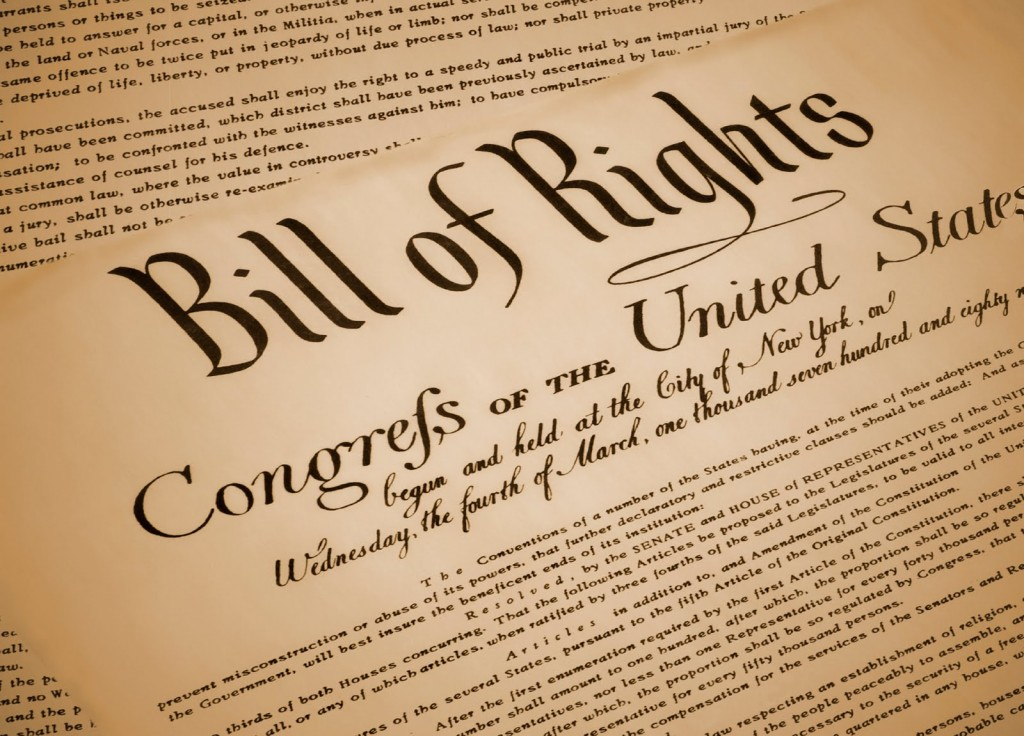 arrants shall
persons or things to be seized.
be held to answer for a capital, or otherwise
the land or Naval forces, or in the Militia, when in actual
same offence to be twice put in jeopardy of life or limb; nor shall be
deprived of life, liberty, or property, without due process of law; nor shall private property
al prosecutions, the accused shall enjoy the right to a speedy and public trial by an impartial jury of the
all have been committed, which district shall have been previously ascertained by law,
sation; to be confronted with the witnesses against him; to have compulsory
assistance of counsel for his defence.
at common law, where the value in controversy shall
a jury, shall be otherwise re-exami
ive bail shall not be
numerati
Bill of Rights
Congreſs OF THE United States
begun and held at the City of New York, on
Wednesday, the fourth of March, one thousand seven hundred and eighty
The Conventions of a number of the States having, at the time of their adopting the
prevent misconstruction or abuse of its powers, that further declaratory and restrictive clauses should be added: And as
the Government, will best insure the beneficent ends of its institution:
Resolved, by the SENATE and HOUSE of REPRESENTATIVES of the UNIT
thirds of both Houses concurring. That the following Articles be proposed to the Legislatures of the several
all, or any of which articles, when ratified by three fourths of the said Legislatures, to be valid to all inte
Articles in addition to, and Amendment of the Constitution of the Uni
res of the several States, pursuant to the fifth Article of the Original Constitution.
After the first enumeration required by the first Article of the Constitution, there
mber shall amount to one hundred, after which, the proportion shall be so regul
sentatives, nor less than one Representative for every forty thousand per
after which, the proportion shall be so regulated by Congress, that
resentative for every fifty thousand persons.
the compensation for the services of the Senators and Re
law respecting an establishment of religion,
of the people peaceably to assemble, an
cessary to the security of a free
quartered in any house, w
persons, houses
probable ca
all,
aw.
of the
and no
and the p
shall be